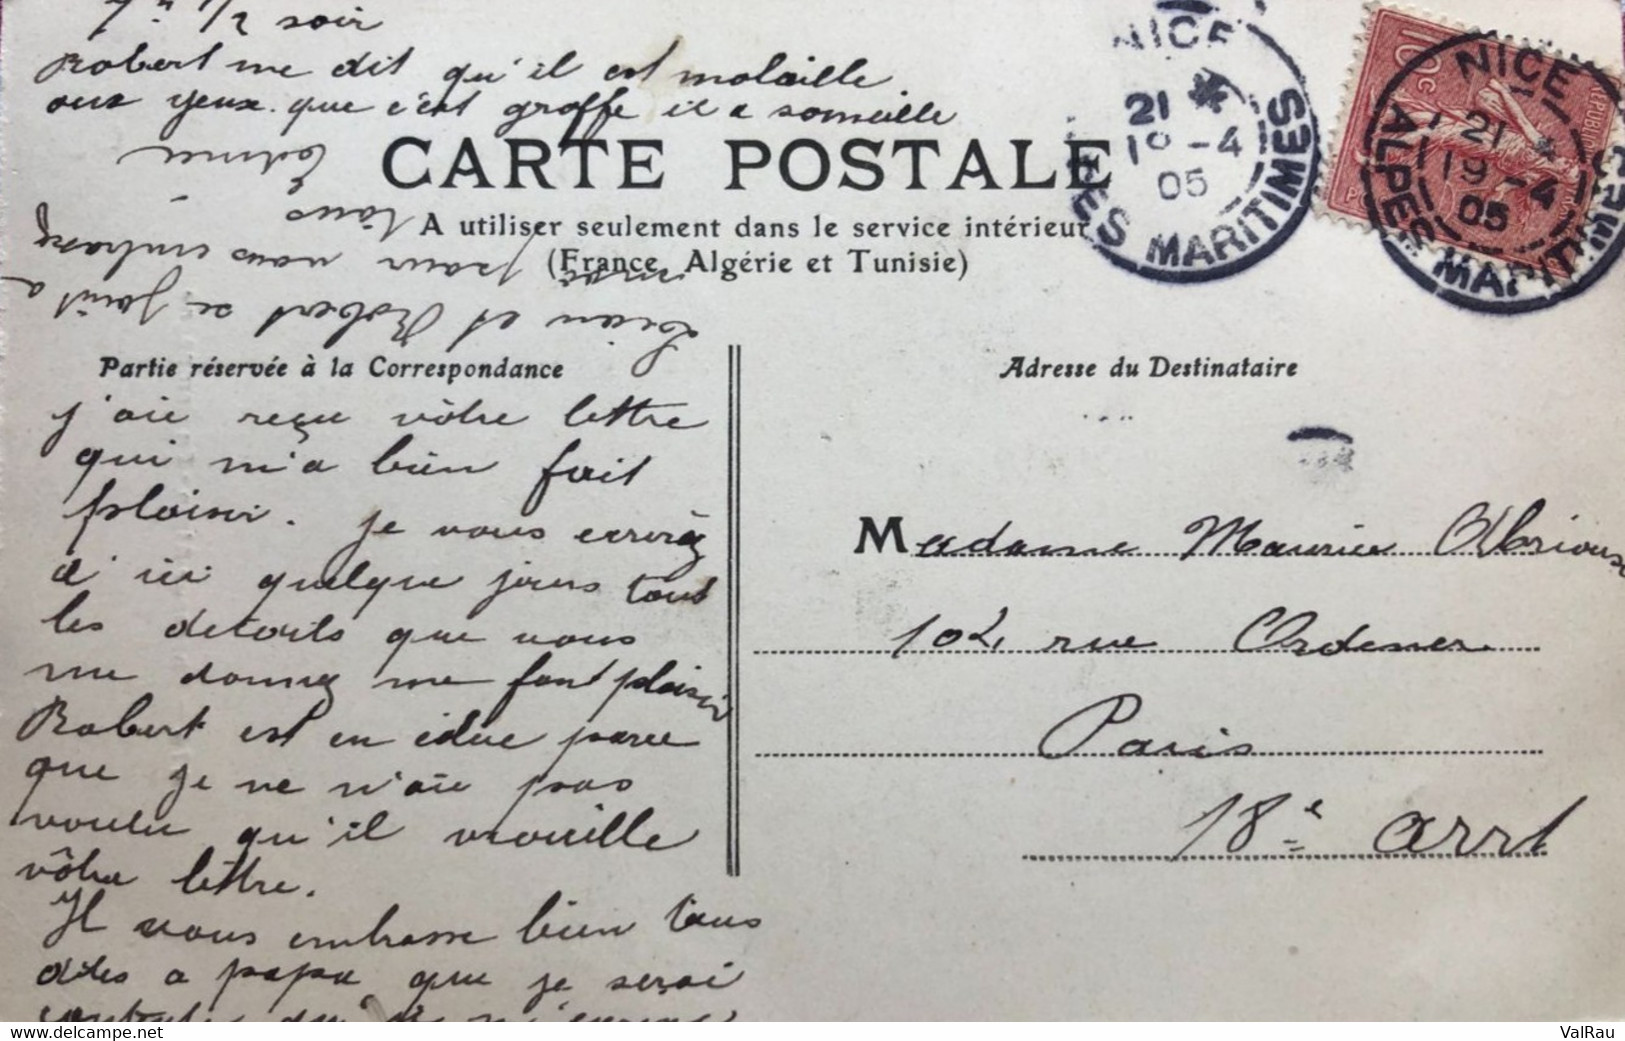 7h 1/2 soir
Robert me dit qu'il est molaille
aux yeux que c'est groffe il a someille
CARTE POSTALE
A utiliser seulement dans le service intérieur
(France, Algérie et Tunisie)
et Robert se joint a
moi pour vous embrasser
tous
Partie réservée à la Correspondance
Adresse du Destinataire
j'aie reçu vôtre lettre
qui m'a bien fait
plaisir. je vous ecrirez
d'ici quelque jours tout
les details que vous
me donnez me font plaisir
Robert est en colue parce
que je ne n'aie pas
voulu qu'il mouille
vôtre lettre.
Il vous embrasse bien tous
dites a papa que je serai
Madame Maurice Albrioux
104 rue Ordener
Paris
18e arrt
NICE
21 *
19 -4
05
ALPES MARITIMES
NICE
21 *
19 -4
05
ALPES MARITIMES
10c
ValRau